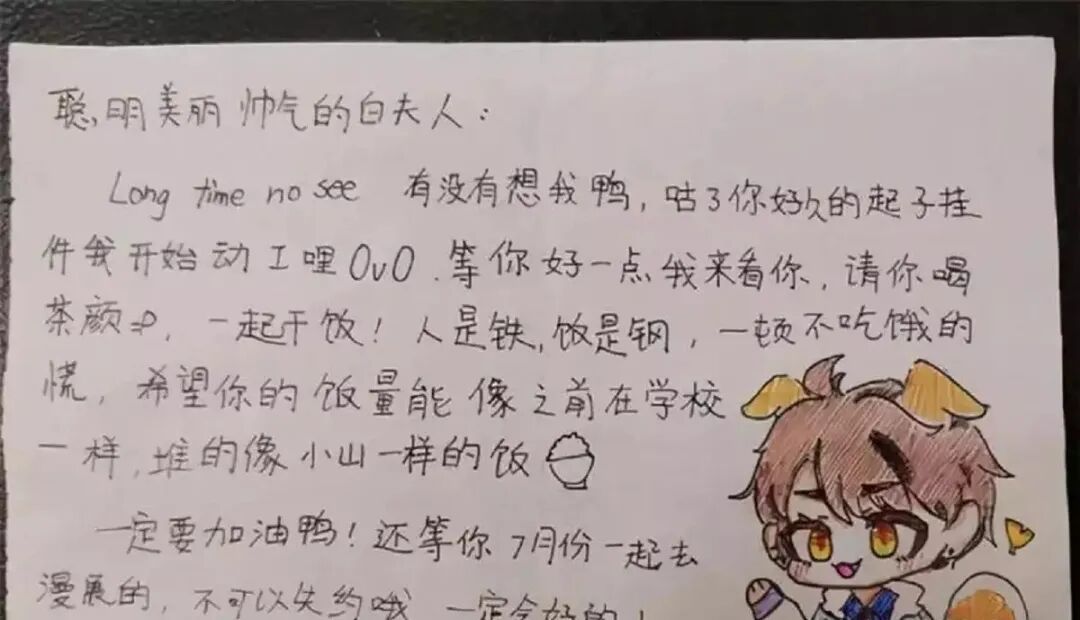 聪明美丽帅气的白夫人：
Long time no see 有没有想我鸭，咕了你好久的起子挂
件我开始动工哩OvO.等你好一点我来看你，请你喝
茶颜=P，一起干饭！人是铁，饭是钢，一顿不吃饿的
慌，希望你的饭量能像之前在学校
一样，堆的像小山一样的饭
一定要加油鸭！还等你7月份一起去
漫展的，不可以失约哦 一定会好的！